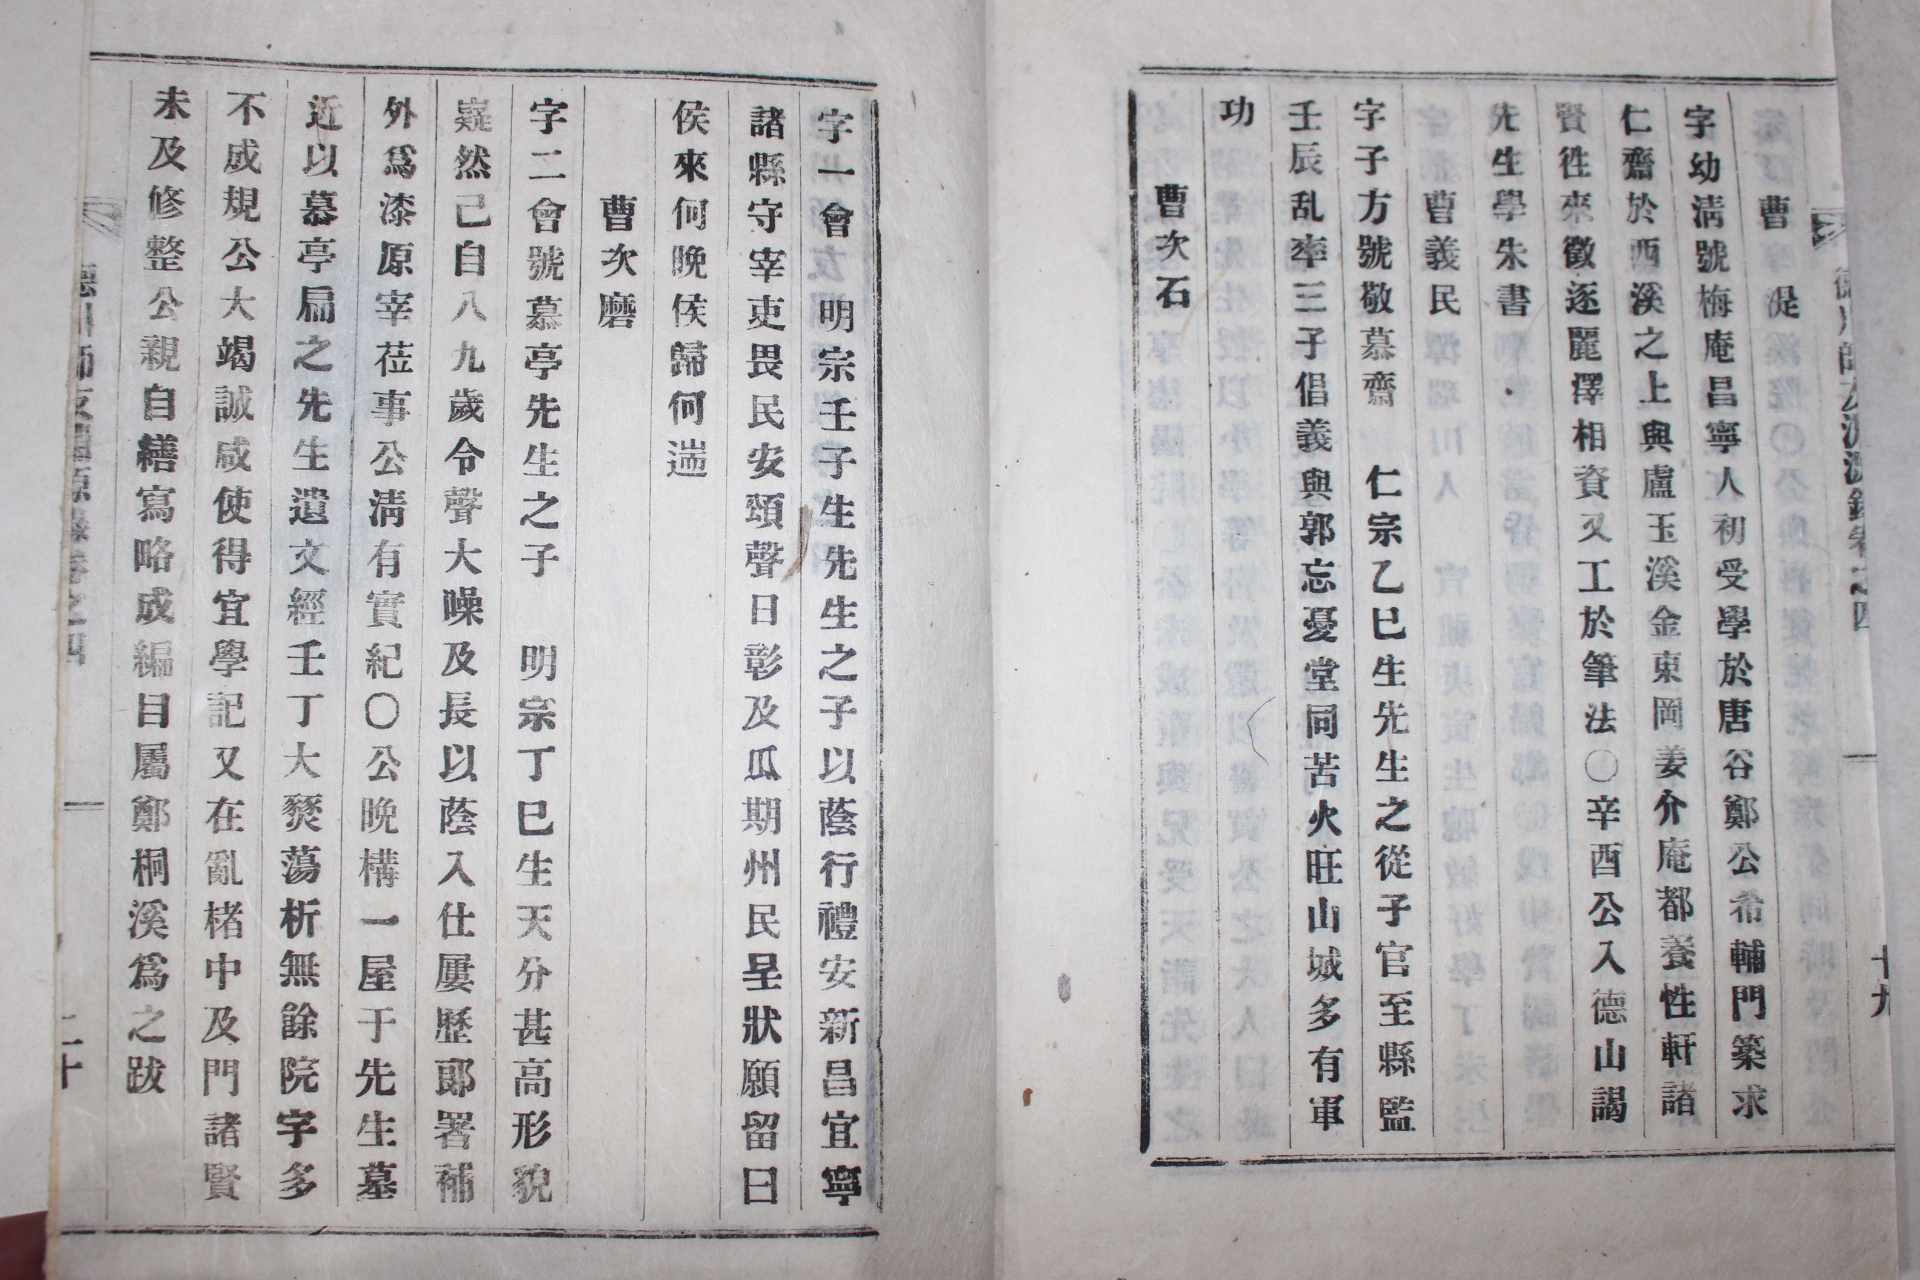 德川師友淵源錄卷之四
十九
曹湜
字幼淸號梅庵昌寧人初受學於唐谷鄭公希輔門築求
仁齋於西溪之上與盧玉溪金東岡姜介庵都養性軒諸
賢徃來徵逐麗澤相資又工於筆法〇辛酉公入德山謁
先生學朱書
曹義民
字子方號敬慕齋　仁宗乙巳生先生之從子官至縣監
壬辰乱率三子倡義與郭忘憂堂同苦火旺山城多有軍
功
曹次石
字一會　明宗壬子生先生之子以蔭行禮安新昌宜寧
諸縣守宰吏畏民安頌聲日彰及瓜期州民呈狀願留曰
侯來何晩侯歸何遄
曹次磨
字二會號慕亭先生之子　明宗丁巳生天分甚高形貌
嶷然已自八九歲令聲大噪及長以蔭入仕屢歷郞署補
外爲漆原宰莅事公淸有實紀〇公晩構一屋于先生墓
近以慕亭扁之先生遺文經壬丁大燹蕩析無餘院字多
不成規公大竭誠咸使得宜學記又在亂楮中及門諸賢
未及修整公親自繕寫略成編目屬鄭桐溪爲之跋
德川師友淵源錄卷之四
二十